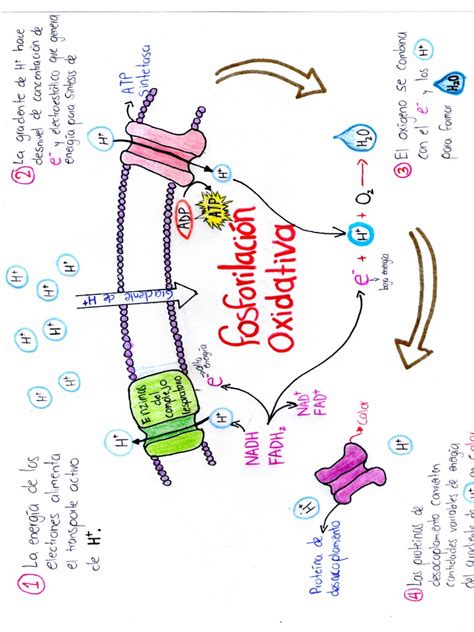 ① La energía de los
electrones alimenta
el transporte activo
de H⁺.
H⁺
H⁺
H⁺
H⁺
H⁺
H⁺
H⁺
② La gradiente de H⁺ hace
desnivel de concentración de
e⁻ y electroestático que genera
energía para síntesis de
H⁺
Enzimas
del
complejo
respiratorio
H⁺
H⁺
e⁻ alta
energía
Gradiente de H⁺
H⁺
ATP
sintetasa
H⁺
ADP
ATP
Fosforilación
Oxidativa
NADH
FADH₂
NAD⁺
FAD⁺
e⁻ + H⁺ + O₂ → H₂O
baja energía
Proteína de
desacoplamiento
H⁺
calor
H⁺
③ El oxígeno se combina
con el e⁻ y los H⁺
para formar H₂O
④ Las proteínas de
desacoplamiento convierten
cantidades variables de energía
del gradiente de H⁺ en calor